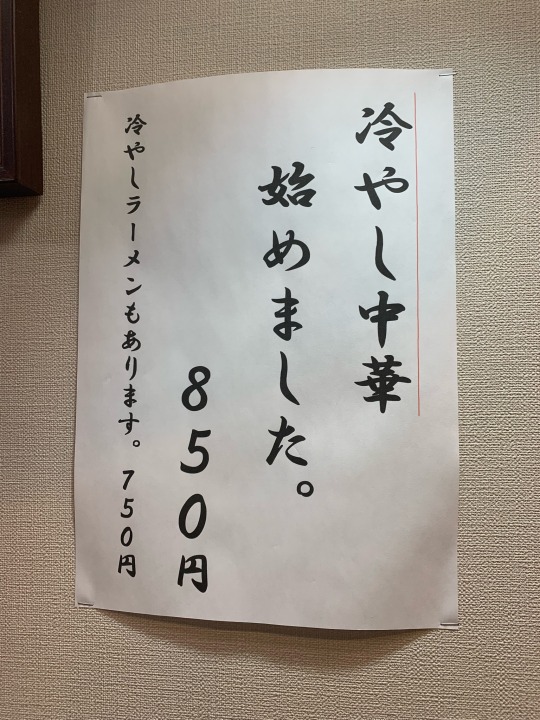 冷やし中華
始めました。
850円
冷やしラーメンもあります。750円